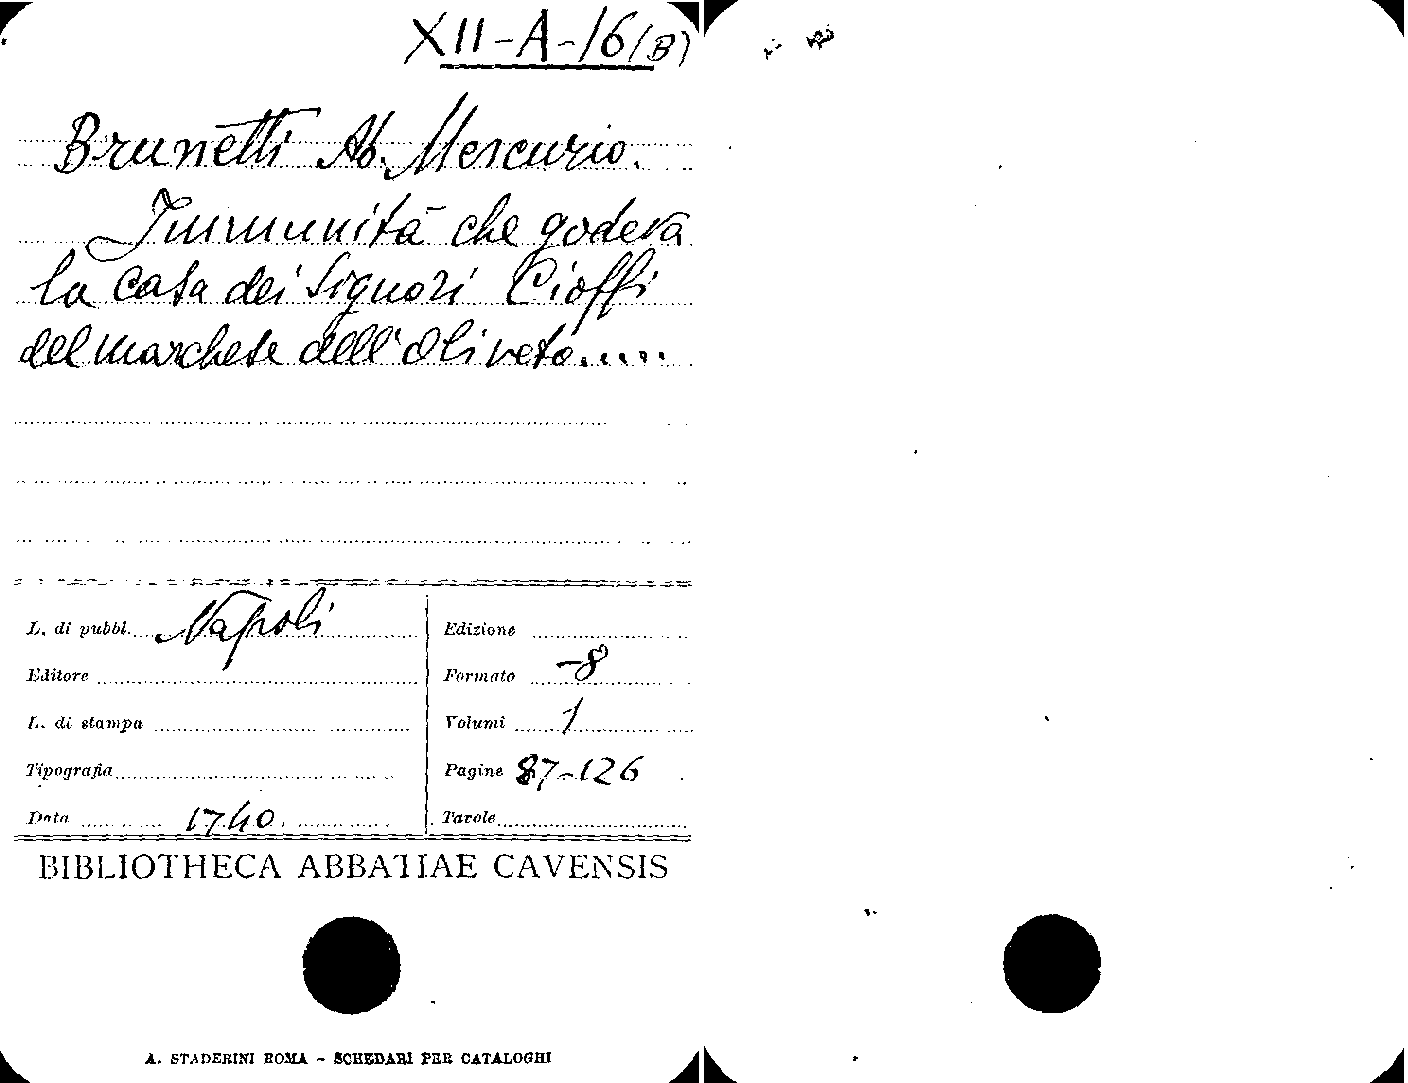 XII-A-16(B)
Brunetti Ab. Mercurio.
Immunità che godeva
la casa dei Signori Cioffi
del marchese dell'Oliveto.....
L. di pubbl. Napoli
Editore
L. di stampa
Tipografia
Data 1740
Edizione
Formato -8
Volumi 1
Pagine 87-126
Tavole
BIBLIOTHECA ABBATIAE CAVENSIS
A. STADERINI ROMA - SCHEDARI PER CATALOGHI